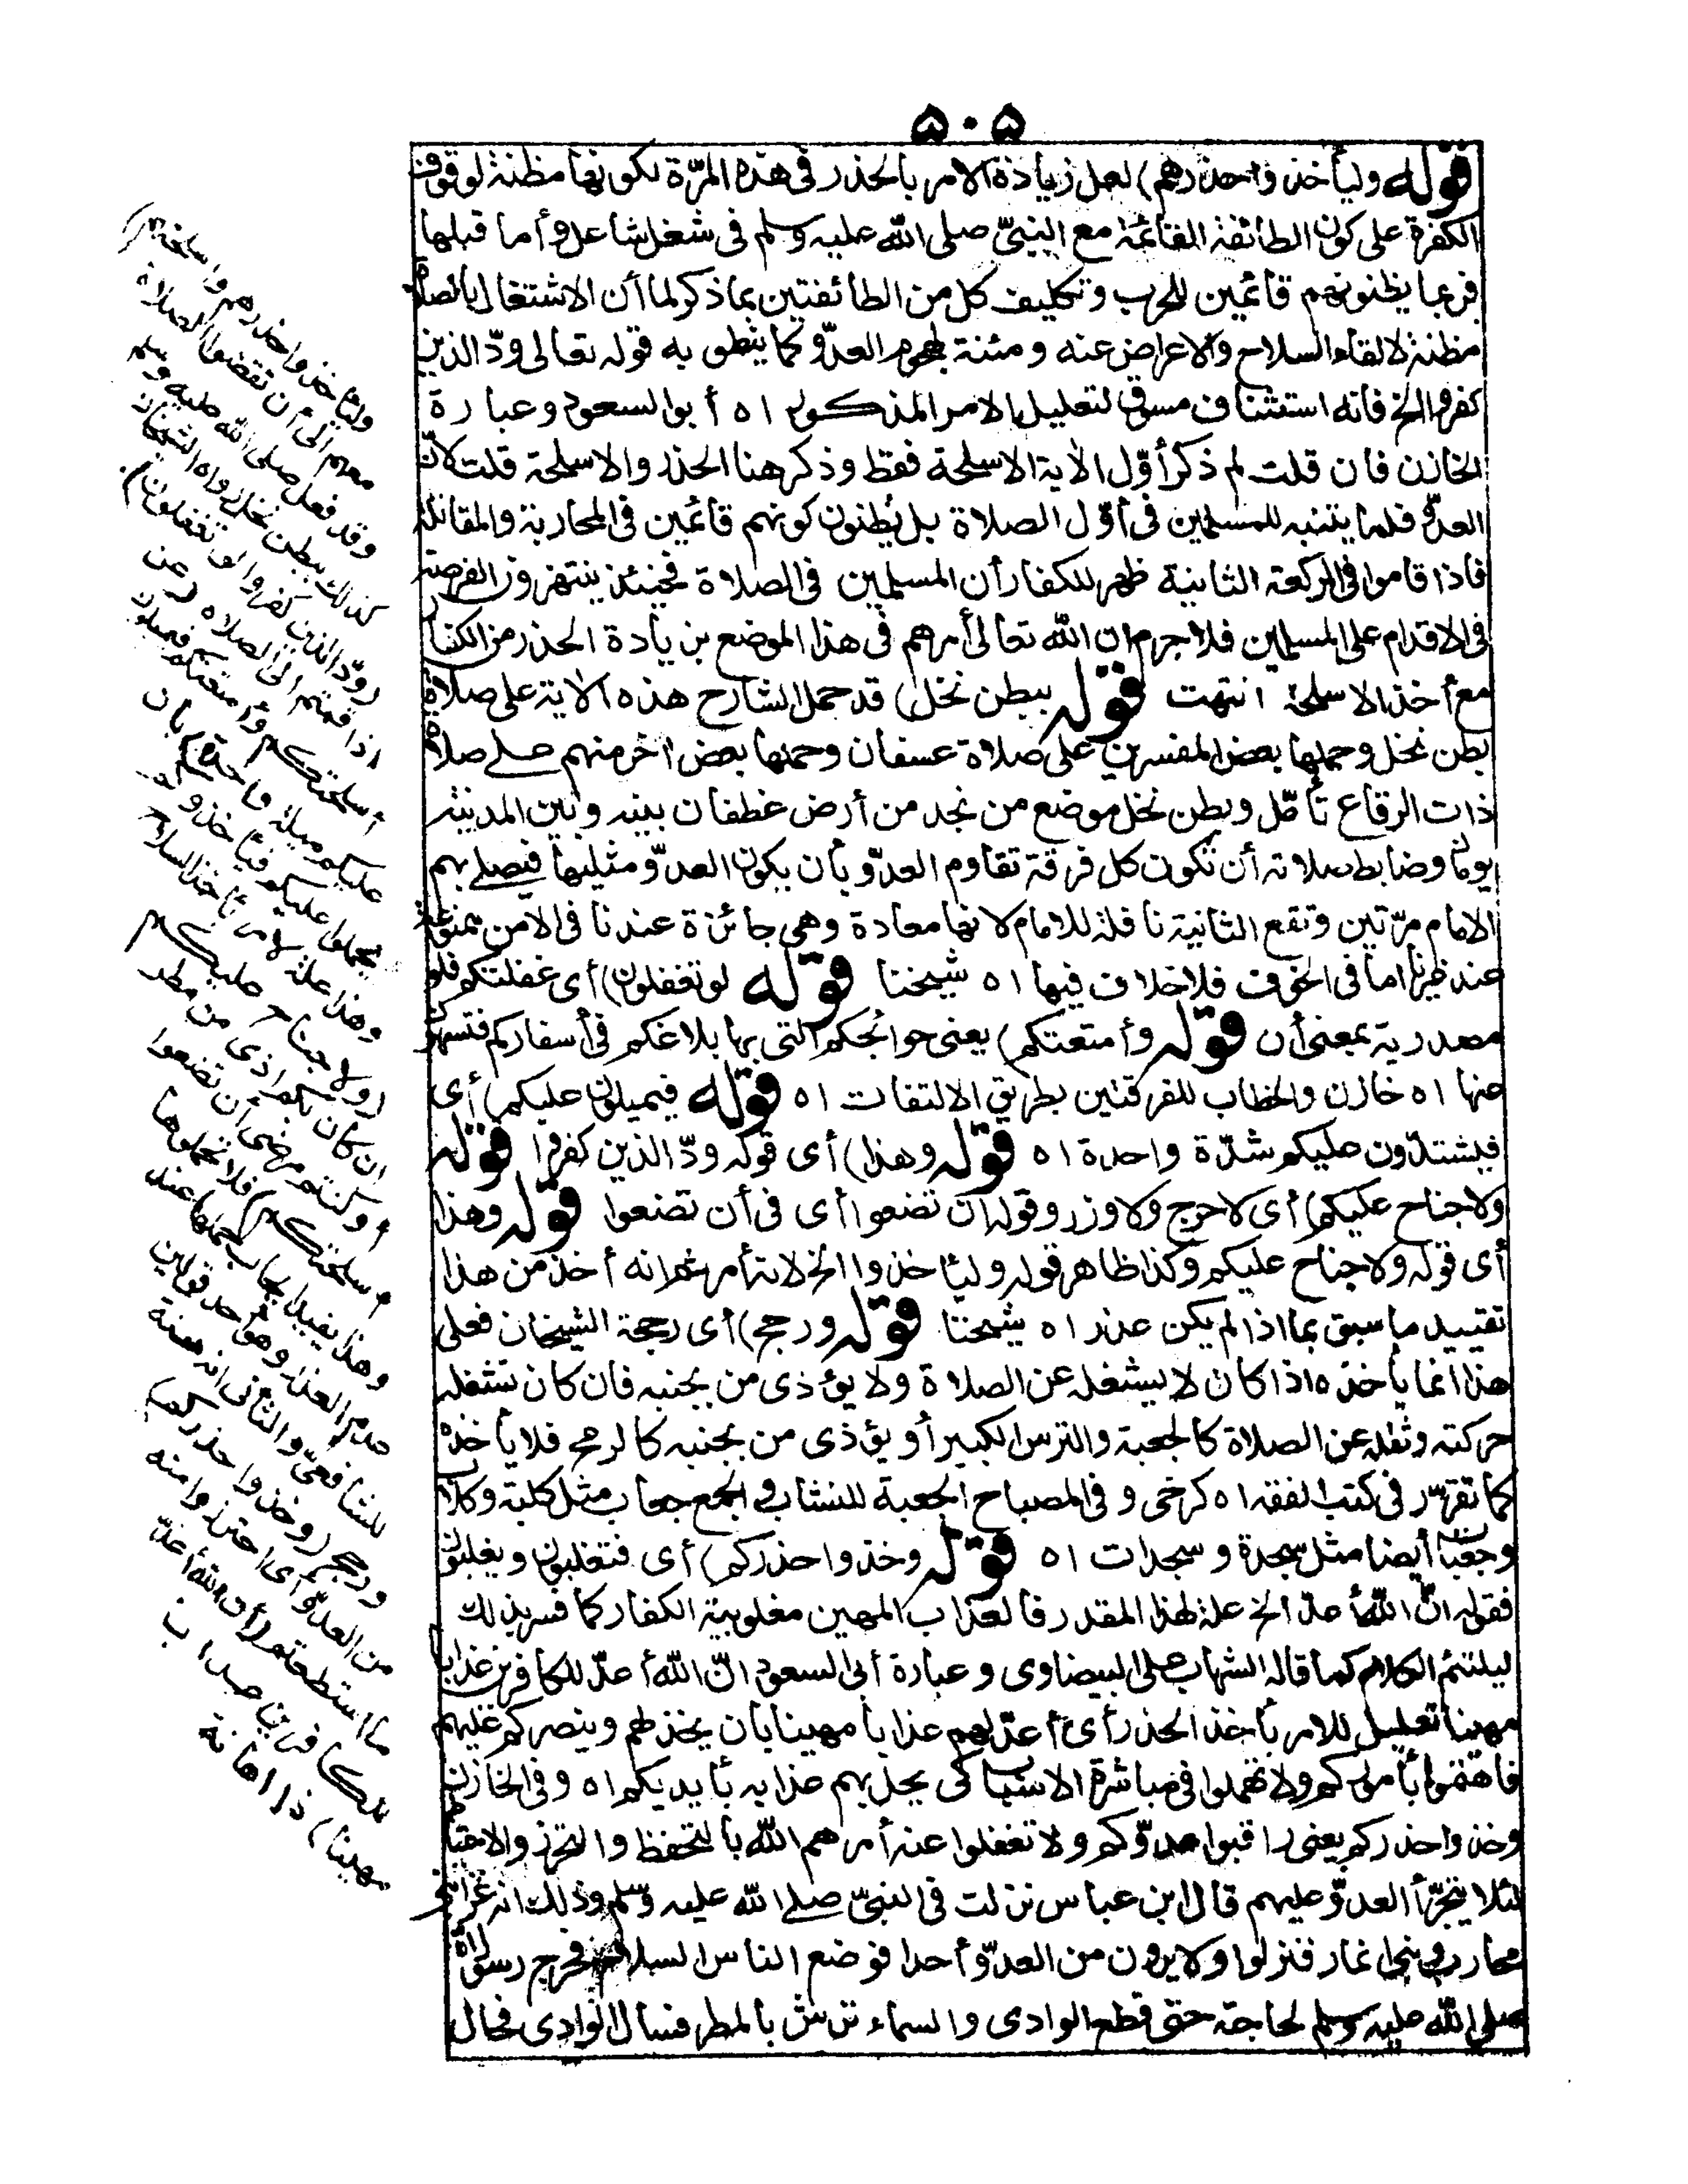 ۵۰۵
قوله وليأخذوا حذرهم) لعل زيادة الامر بالحذر فى هذه المرّة لكونها مظنة لوقوف
الكفرة على كون الطائفة القائمة مع النبىّ صلى الله عليه وسلم فى شغل شاغل وأما قبلها
فربما يظنونهم قائمين للحرب وتكليف كل من الطائفتين بما ذكر لما أن الاشتغال بالصلاة
مظنة لالقاء السلاح والاعراض عنه ومئنة لهجوم العدوّ كما ينطق به قوله تعالى ودّ الذين
كفروا الخ فانه استئناف مسوق لتعليل الامر المذكور اه أبو السعود وعبارة
الخازن فان قلت لم ذكر أوّل الآية الاسلحة فقط وذكر هنا الحذر والاسلحة قلت لانّ
العدوّ قلما يتنبه للمسلمين فى أوّل الصلاة بل يظنون كونهم قائمين فى المحاربة والمقاتلة
فاذا قاموا فى الركعة الثانية ظهر للكفار أن المسلمين فى الصلاة فحينئذ ينتهزون الفرصة
فى الاقدام على المسلمين فلا جرم ان الله تعالى أمرهم فى هذا الموضع بزيادة الحذر من الكفار
مع أخذ الاسلحة انتهت قوله ببطن نخل) قد حمل الشارح هذه الآية على صلاة
بطن نخل وحملها بعض المفسرين على صلاة عسفان وحملها بعض آخر منهم على صلاة
ذات الرقاع تأمّل وبطن نخل موضع من نجد من أرض غطفان بينه وبين المدينة
يومان وضابط صلاته أن تكون كل فرقة تقاوم العدوّ بأن يكون العدوّ مثليها فيصلى بهم
الامام مرّتين وتقع الثانية نافلة للامام لانها معادة وهى جائزة عندنا فى الامن ممنوعة
عند غيرنا اما فى الخوف فلا خلاف فيها اه شيخنا قوله لو تغفلون) أى غفلتكم فلو
مصدرية بمعنى أن قوله وأمتعتكم) يعنى حوائجكم التى بها بلاغكم فى أسفاركم فتسهون
عنها اه خازن والخطاب للفرقتين بطريق الالتفات اه قوله فيميلون عليكم) أى
فيشتدّون عليكم شدّة واحدة اه قوله وهذا) أى قوله ودّ الذين كفروا قوله
ولا جناح عليكم) أى لا حرج ولا وزر وقوله أن تضعوا أى فى أن تضعوا قوله وهذا
أى قوله ولا جناح عليكم وكذا ظاهر قوله وليأخذوا الخ لانه أمر ثم انه أخذ من هذا
تقييد ما سبق بما اذا لم يكن عذر اه شيخنا قوله ورجح) أى رجحه الشيخان فعلى
هذا انما يأخذه اذا كان لا يشغله عن الصلاة ولا يؤذى من بجنبه فان كان تشغله
حركته وثقله عن الصلاة كالجعبة والترس الكبير أو يؤذى من بجنبه كالرمح فلا يأخذه
كما تقرّر فى كتب الفقه اه كرخى وفى المصباح الجعبة للنشاب والجمع جعاب مثل كلبة وكلاب
وجعبات أيضا مثل سجدة وسجدات اه قوله وخذوا حذركم) أى فتغلبون ويغلبون
فقوله انّ الله أعدّ الخ علة لهذا المقدر فالعذاب المهين مغلوبية الكفار كما فسر بذلك
ليلتئم الكلام كما قاله الشهاب على البيضاوى وعبارة أبى السعود انّ الله أعدّ للكافرين عذابا
مهينا تعليل للامر بأخذ الحذر أى أعدّ لهم عذابا مهينا بان يخذلهم وينصركم عليهم
فاهتموا بأموركم ولا تهملوا فى مباشرة الاسباب كى يحل بهم عذابه بأيديكم اه وفى الخازن
وخذوا حذركم يعنى راقبوا عدوّكم ولا تغفلوا عنه أمرهم الله بالتحفظ والتحرز والاحتياط
لئلا يتجرّأ العدوّ عليهم قال ابن عباس نزلت فى النبىّ صلى الله عليه وسلم وذلك انه غزا بنى
محارب وبنى انمار فنزلوا ولا يرون من العدوّ أحدا فوضع الناس السلاح فخرج رسول الله
صلى الله عليه وسلم لحاجة حتى قطع الوادى والسماء ترش بالمطر فسال الوادى فحال
وليأخذوا حذرهم وأسلحتهم)
معهم الى أن تقضوا الصلاة
وقد فعل صلى الله عليه وسلم
كذلك ببطن نخل رواه الشيخان
(ودّ الذين كفروا لو تغفلون)
اذا قمتم الى الصلاة (عن
أسلحتكم وأمتعتكم فيميلون
عليكم ميلة واحدة) بأن
يحملوا عليكم فيأخذوكم
وهذا علة الامر بأخذ السلاح
(ولا جناح عليكم
ان كان بكم أذى من مطر
أو كنتم مرضى أن تضعوا
أسلحتكم) فلا تحملوها
وهذا يفيد ايجاب حملها عند
عدم العذر وهو أحد قولين
للشافعىّ والثانى انه سنة
ورجح (وخذوا حذركم)
من العدوّ أى احترزوا منه
ما استطعتم (ان الله أعدّ
للكافرين عذابا
مهينا) ذا اهانة